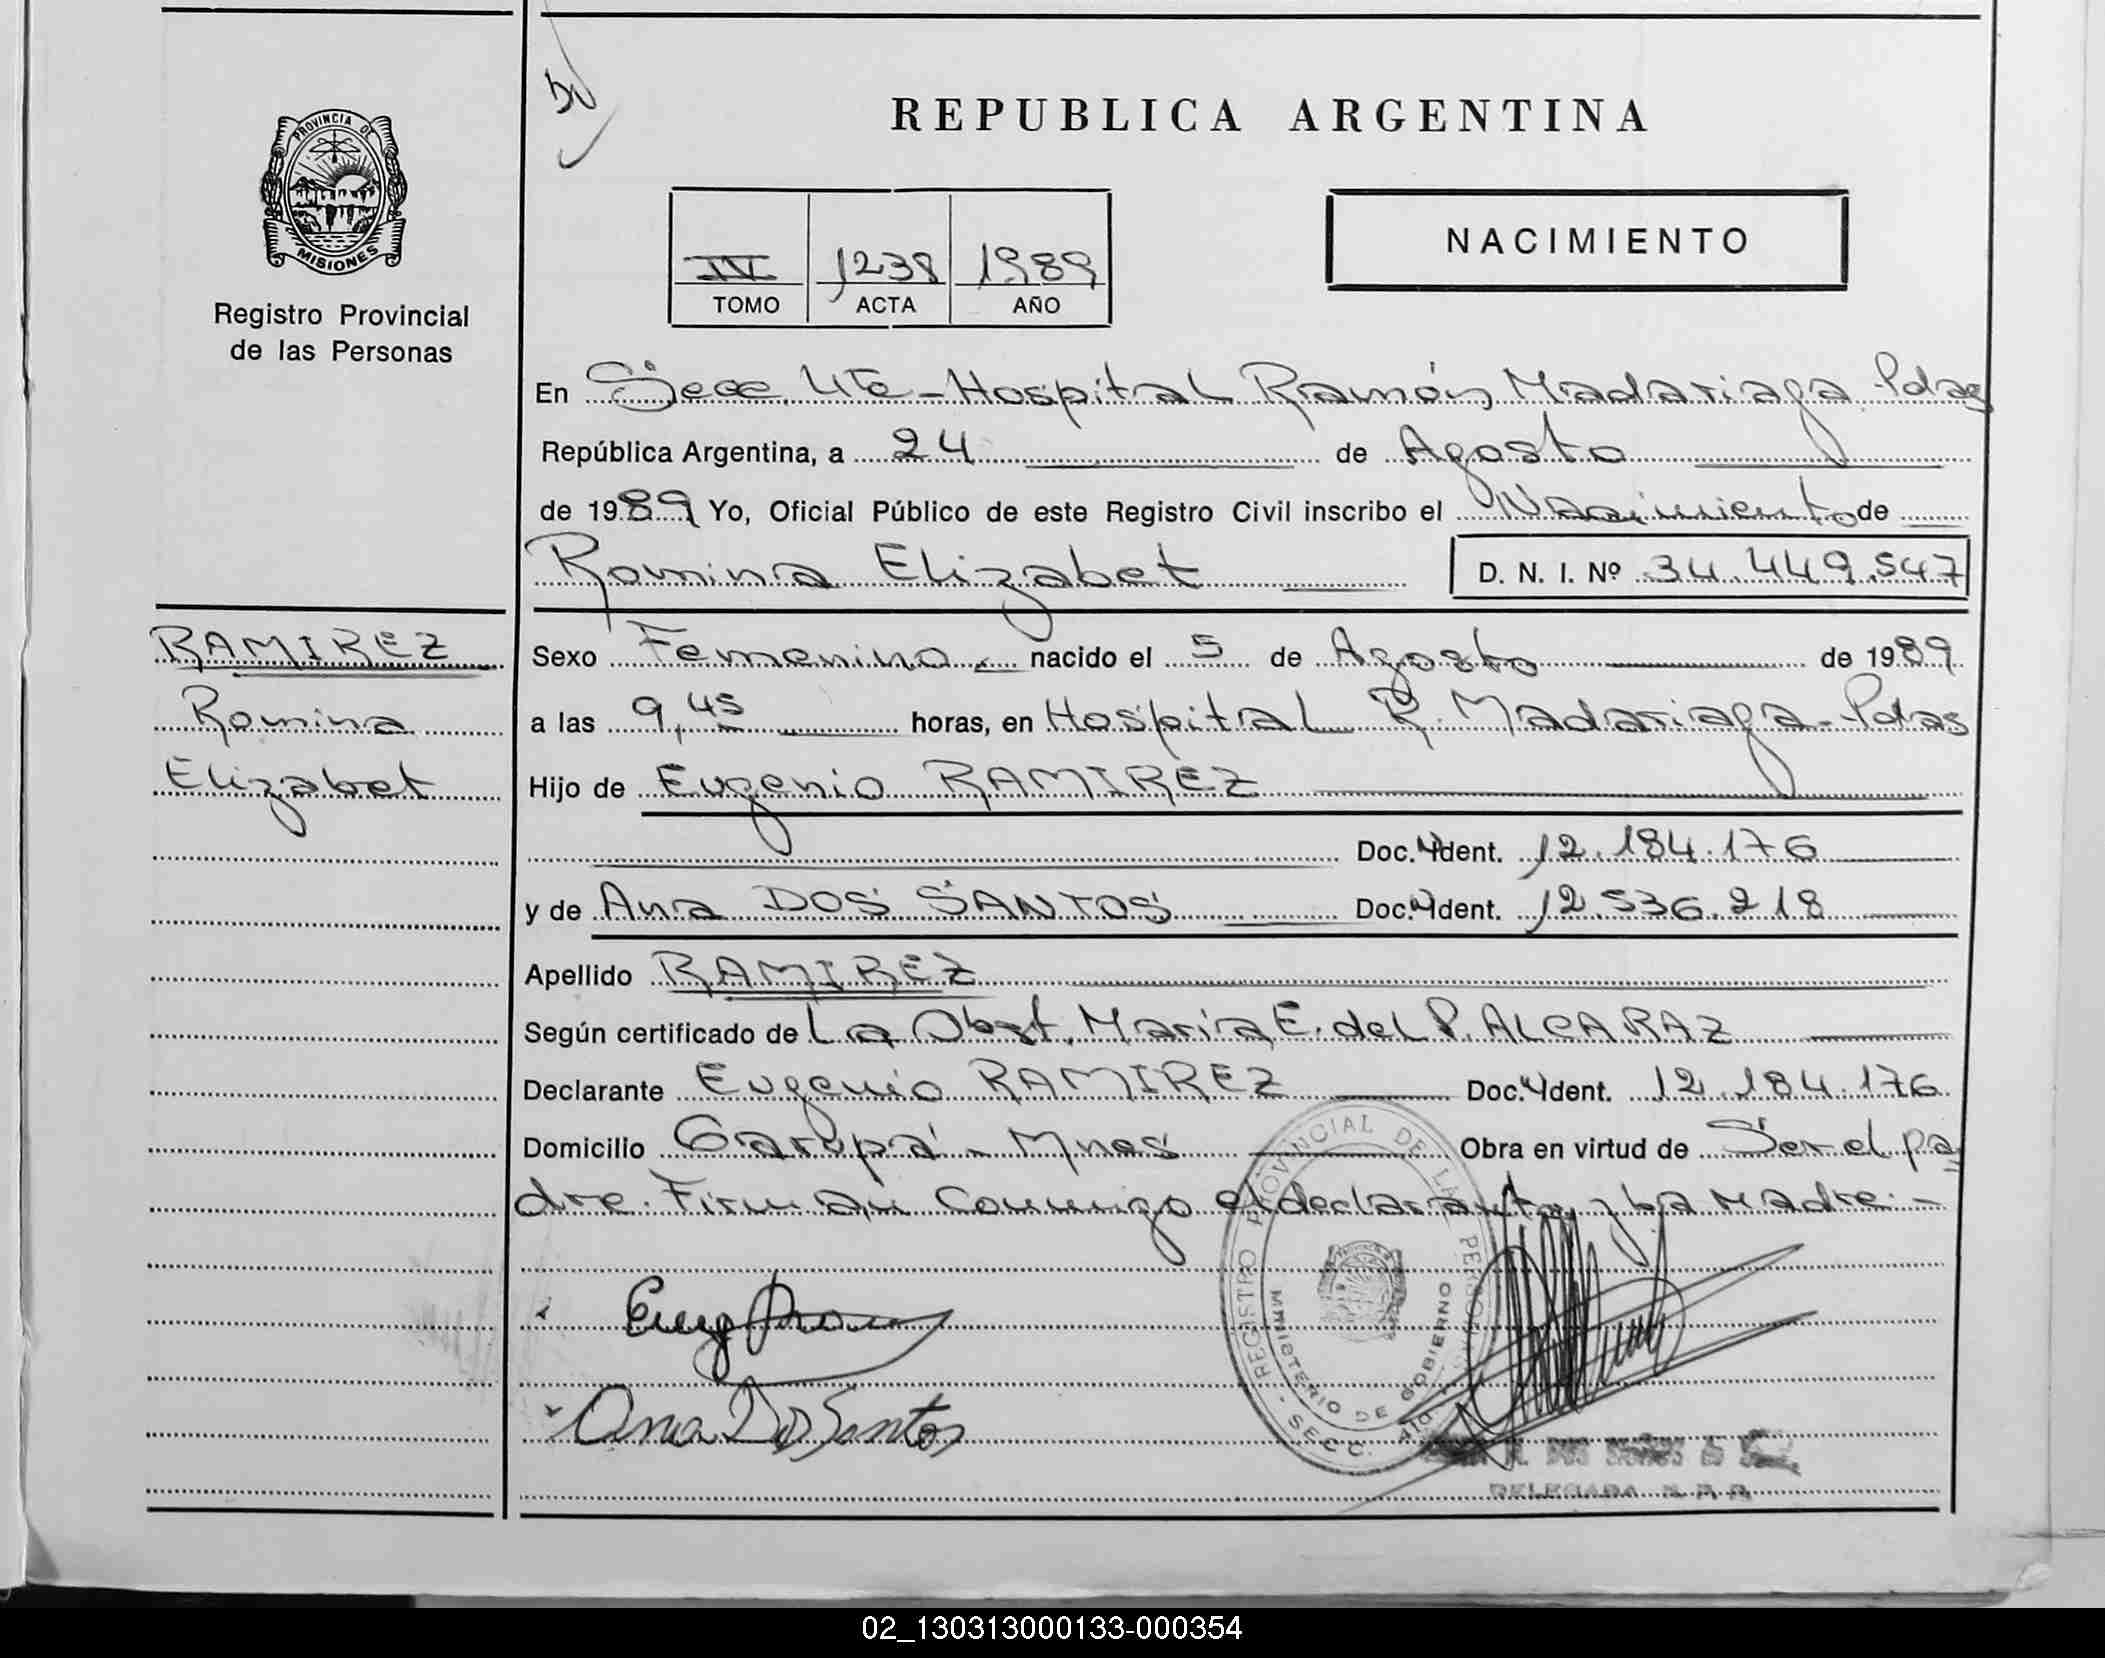 REPUBLICA ARGENTINA
PROVINCIA DE
MISIONES
Registro Provincial
de las Personas
IV 1238 1989
TOMO ACTA AÑO
NACIMIENTO
En Secc. 4ta - Hospital Ramón Madariaga. Pdas
República Argentina, a 24 de Agosto
de 1989 Yo, Oficial Público de este Registro Civil inscribo el Nacimiento de
Romina Elizabet D. N. I. Nº 34.449.547
RAMIREZ
Romina
Elizabet
Sexo Femenino nacido el 5 de Agosto de 1989
a las 9,45 horas, en Hospital R. Madariaga - Pdas
Hijo de Eugenio RAMIREZ
Doc. Ident. 12.184.176
y de Ana DOS SANTOS Doc. Ident. 12.536.218
Apellido RAMIREZ
Según certificado de La Obst. María E. del P. ALCARAZ
Declarante Eugenio RAMIREZ Doc. Ident. 12.184.176
Domicilio Garupá - Mnes Obra en virtud de Ser el pa
dre. Firman Conmigo el declarante y La Madre.-
REGISTRO PROVINCIAL DE LAS PERSONAS
MINISTERIO DE GOBIERNO
SECC.
Ana Dos Santos
DELEGADA R. P. P.
02_130313000133-000354